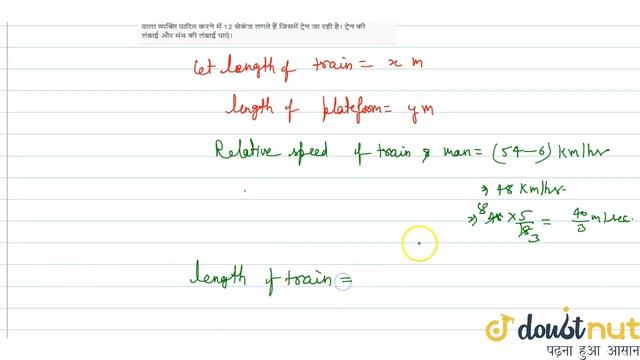 वाला व्यक्ति पारित करने में 12 सेकंड लगते हैं जिसमें ट्रेन जा रही है। ट्रेन की
लंबाई और मंच की लंबाई पाएं।
Let length of train = x m
length of plateform = y m
Relative speed of train & man = (54-6) km/hr
⇒ 48 km/hr
⇒ 8 48 × 5/18 3 = 40/3 m/sec.
length of train =
doubtnut
पढ़ना हुआ आसान